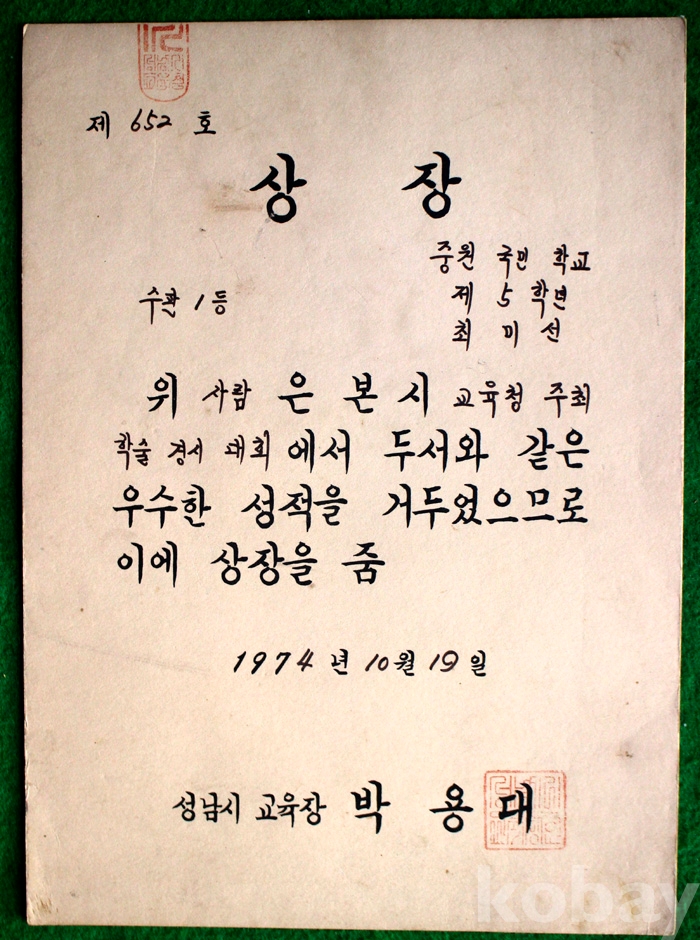 제 652 호
상 장
중원 국민 학교
수판 1등
제 5 학년
최 미 선
위 사람 은 본 시 교육청 주최
학술 경시 대회 에서 두서와 같은
우수한 성적을 거두었으므로
이에 상장을 줌
1974 년 10월 19 일
성남시 교육장 박 용 대
kobay